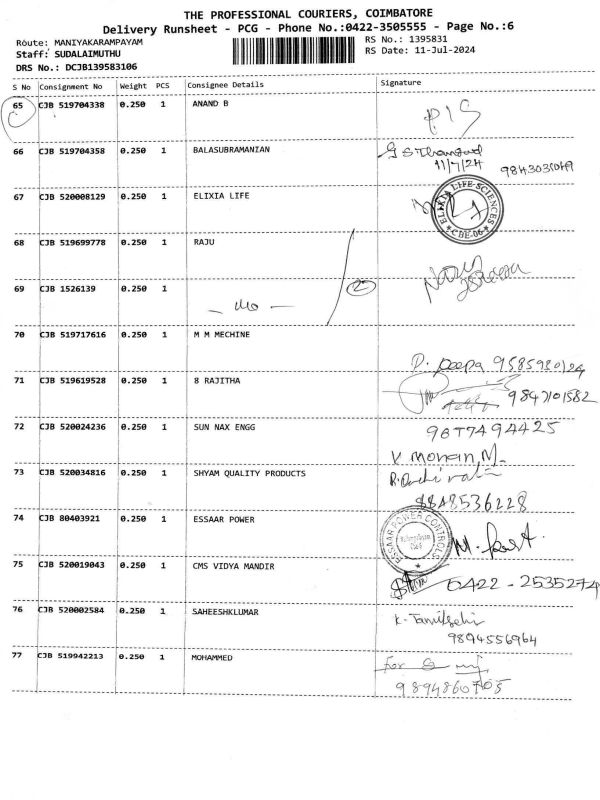 THE PROFESSIONAL COURIERS, COIMBATORE
Delivery Runsheet - PCG - Phone No.:0422-3505555 - Page No.:6
Route: MANIYAKARAMPAYAM
RS No.: 1395831
Staff: SUDALAIMUTHU
RS Date: 11-Jul-2024
DRS No.: DCJB139583106
S No Consignment No Weight PCS Consignee Details Signature
65 CJB 519704338 0.250 1 ANAND B
66 CJB 519704358 0.250 1 BALASUBRAMANIAN
11/7/24
67 CJB 520008129 0.250 1 ELIXIA LIFE
LIFE-SCIENCES
CBE-06
68 CJB 519699778 0.250 1 RAJU
69 CJB 1526139 0.250 1
70 CJB 519717616 0.250 1 M M MECHINE
P. Deepa 9585980124
71 CJB 519619528 0.250 1 8 RAJITHA
9847101582
72 CJB 520024236 0.250 1 SUN NAX ENGG
9677494425
V Mohan, M.
73 CJB 520034816 0.250 1 SHYAM QUALITY PRODUCTS
8848536228
74 CJB 80403921 0.250 1 ESSAAR POWER
ESSAAR POWER CONTROLS
75 CJB 520019043 0.250 1 CMS VIDYA MANDIR
0422 - 2535274
76 CJB 520002584 0.250 1 SAHEESHKLUMAR
K. Tamilselvi
9894556964
77 CJB 519942213 0.250 1 MOHAMMED
for
9894860705